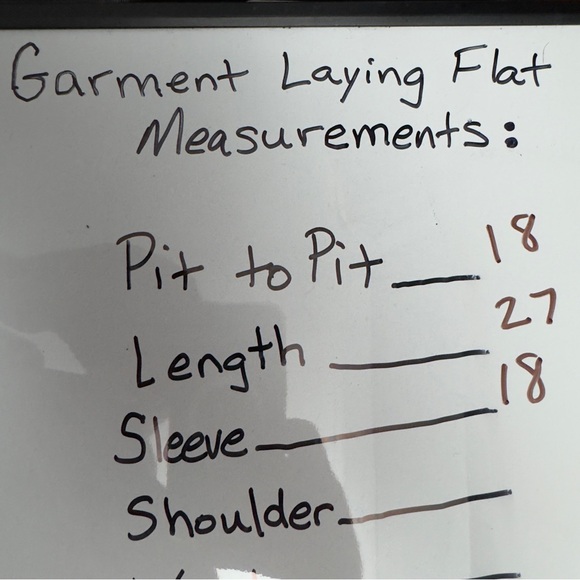 Garment Laying Flat
Measurements:
Pit to Pit __ 18
Length __ 27
Sleeve __ 18
Shoulder __